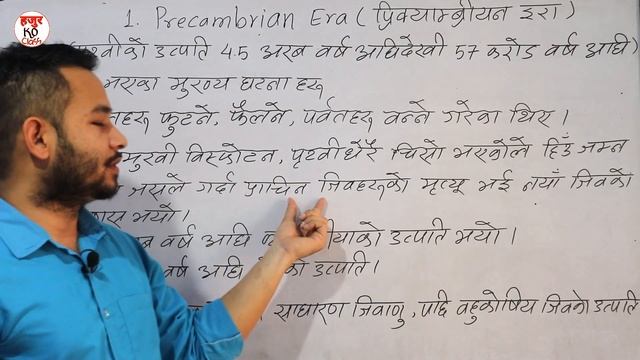 हजुर
KO
Class
1. Precambrian Era (प्रिक्याम्बीयन इरा)
पृथ्वीको उत्पति 4.5 अरब वर्ष अघिदेखी 57 करोड वर्ष अघि)
भएका मुख्य घटना हरू
फुटने, फैलने, पर्वतहरू वन्ने गरेका थिए ।
मुखी विस्फोटन, पृथ्वी धेरै चिसो भएकोले हिउँ जम्न
जसले गर्दा प्राचिन जिवहरूको मृत्यू भई नयाँ जिवको
भयो ।
वर्ष अघि उत्पति भयो ।
वर्ष अघि उत्पति ।
साधारण जिवाणु, पछि वहुकोषिय जिवको उत्पति